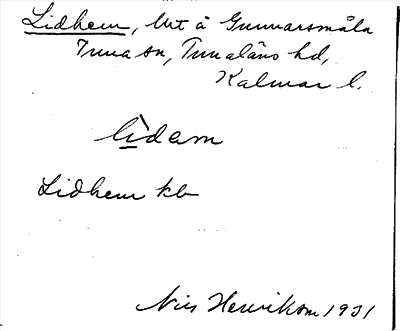 Lidhem, Urt å Gunnarsmåla
Tuna sn, Tunaläns hd,
Kalmar l.
lìdam
Lidhem kb
Nils Henrikson 1931